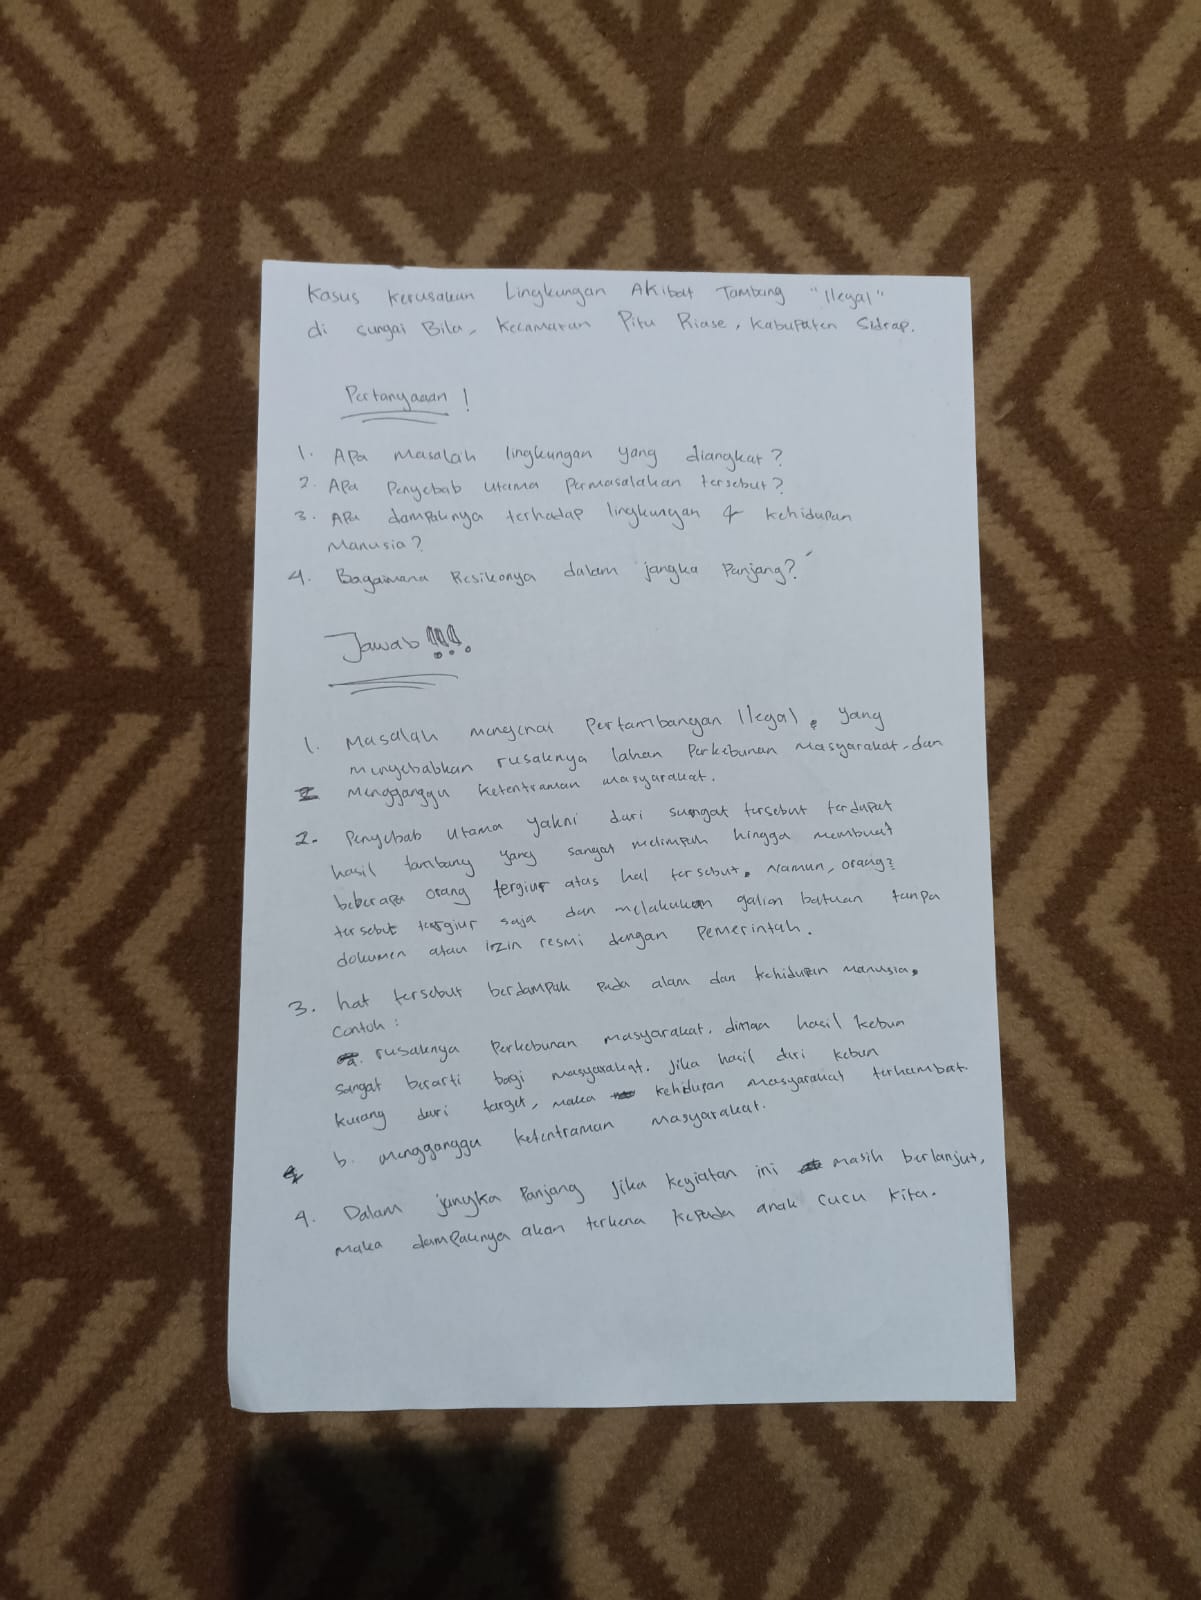 Kasus Kerusakan Lingkungan Akibat Tambang "Ilegal"
di sungai Bila, Kecamatan Pitu Riase, Kabupaten Sidrap.
Pertanyaaan !
1. Apa Masalah lingkungan yang diangkat?
2. Apa Penyebab Utama Permasalahan tersebut?
3. Apa dampaknya terhadap lingkungan & kehidupan
Manusia?
4. Bagaimana Resikonya dalam jangka Panjang?
Jawab !!!.
1. Masalah mengenai Pertambangan Ilegal, yang
menyebabkan rusaknya lahan Perkebunan Masyarakat, dan
mengganggu ketentraman masyarakat.
2. Penyebab Utama yakni dari sungai tersebut terdapat
hasil tambang yang sangat melimpah hingga membuat
beberapa orang tergiur atas hal tersebut. Namun, orang2
tersebut tergiur saja dan melakukan galian batuan tanpa
dokumen atau izin resmi dengan Pemerintah.
3. hal tersebut berdampak pada alam dan kehidupan manusia.
Contoh :
a. rusaknya Perkebunan masyarakat. dimaa hasil kebun
sangat berarti bagi masyarakat. Jika hasil dari kebun
kurang dari target, maka kehidupan masyarakat terhambat.
b. mengganggu ketentraman masyarakat.
4. Dalam jangka Panjang Jika kegiatan ini masih berlanjut,
maka dampaknya akan terkena kepada anak cucu kita.